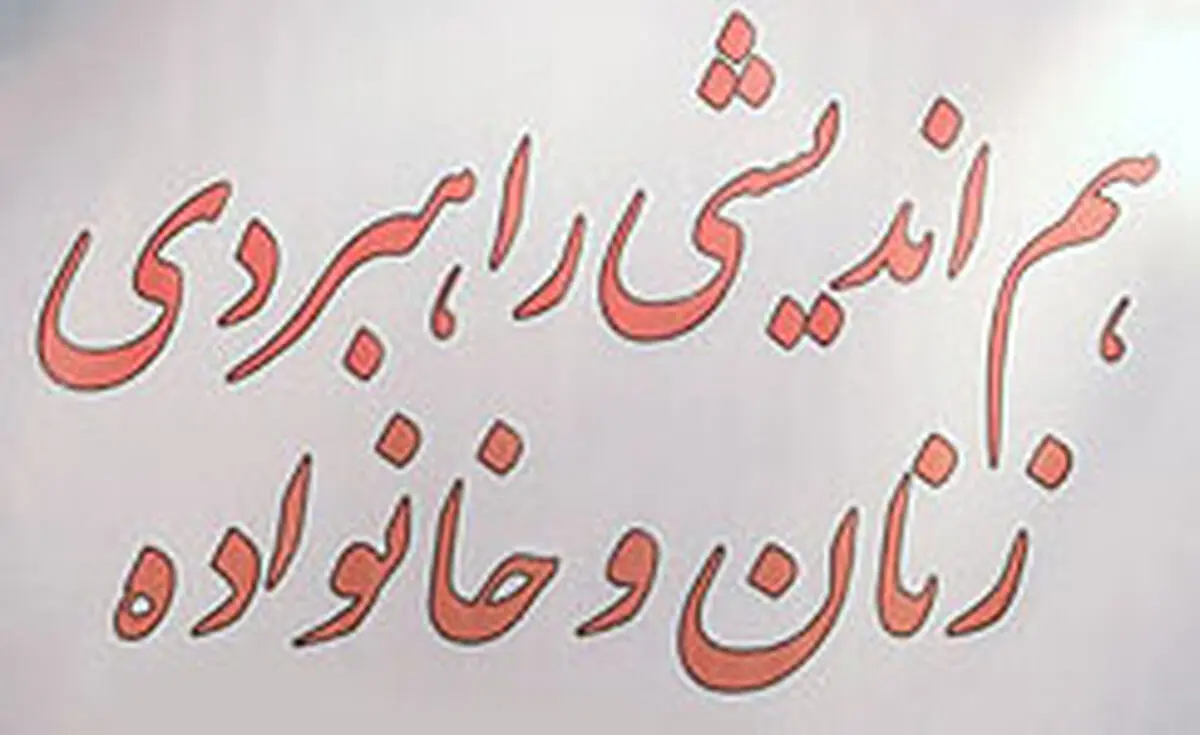 هم اندیشی راهبردی
زنان و خانواده